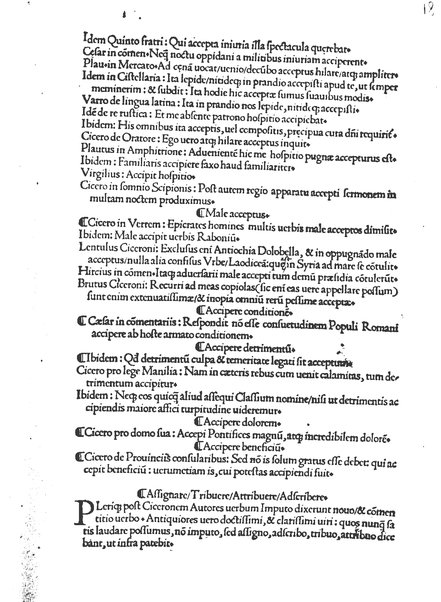 Idem Quinto fratri: Qui accepta iniuria illa spectacula quęrebat.
Cesar in cōmen. Neq; noctu oppidani a militibus iniuriam acciperent.
Plau. in Mercato: Ad cenā uocat/uenio/decūbo acceptus hilare/atq; ampliter.
Idem in Cistellaria: Ita lepide/nitideq; in prandio accepisti apud te, ut semper
meminerim: & subdit: Ita hodie hic acceptæ sumus suauibus modis.
Varro de lingua latina: Ita in prandio nos lepide, nitideq; accepisti.
Idē de re rustica: Et me absente patrono hospitio accipiebat.
Ibidem: His omnibus ita acceptis, uel compositis, precipua cura dn̄i requiriť.
Cicero de Oratore: Ego uero atq; hilare acceptus inquit.
Plautus in Amphitrione: Aduenientē hic me hospitio pugneæ accepturus est.
Ibidem: Familiaris accipiere faxo haud familiariter.
Virgilius: Accipit hospitio.
Cicero in somnio Scipionis: Post autem regio apparatu accepti sermonem in
multam noctem produximus.
¶Male acceptus.
¶Cicero in Verrem: Epicrates homines multis uerbis male acceptos dimisit.
Ibidem: Male accipit uerbis Raboniū.
Lentulus Ciceroni: Exclusus eni Antochia Dolobella, & in oppugnādo male
acceptus/nulla alia confisus Vrbe/Laodiceā: quę in Syria ad mare se cōtulit.
Hircius in cōmen. Itaq; aduersarii male accepti tum demū præsidia cōtulerūt.
Brutus Ciceroni: Recurri ad meas copiolas (sic eni eas uere appellare possum)
sunt enim extenuatissimæ/& inopia omniū rerū pessime acceptæ.
¶Accipere conditionē.
¶Cæsar in cōmentariis: Respondit nō esse consuetudinem Populi Romani
accipere ab hoste armato conditionem.
¶Accipere detrimentū.
¶Ibidem: Qđ detrimentū culpa & temeritate legati sit acceptum.
Cicero pro lege Manilia: Nam in cæteris rebus cum uenit calamitas, tum de-
trimentum accipitur.
Ibidem: Neq; eos quicq; aliud assequi Classium nomine/nisi ut detrimentis ac
cipiendis maiore affici turpitudine uideremur.
¶Accipere dolorem.
¶Cicero pro domo sua: Accepi Pontifices magnū, atq; incredibilem dolorē.
¶Accipere beneficiū.
¶Cicero de Prouinciis consularibus: Sed nō is solum gratus esse debet: qui ac
cepit beneficiū: uerumetiam is, cui potestas accipiendi fuit.
¶Assignare/Tribuere/Attribuere/Adscribere.
PLeriq; post Ciceronem Autores uerbum Imputo dixerunt nouo/& cōmen
titio uerbo. Antiquiores uero doctissimi, & clarissimi uiri: quos nunq; sa
tis laudare possumus, nō imputo, sed assigno, adscribo, tribuo, attribuo dice
bant, ut infra patebit.